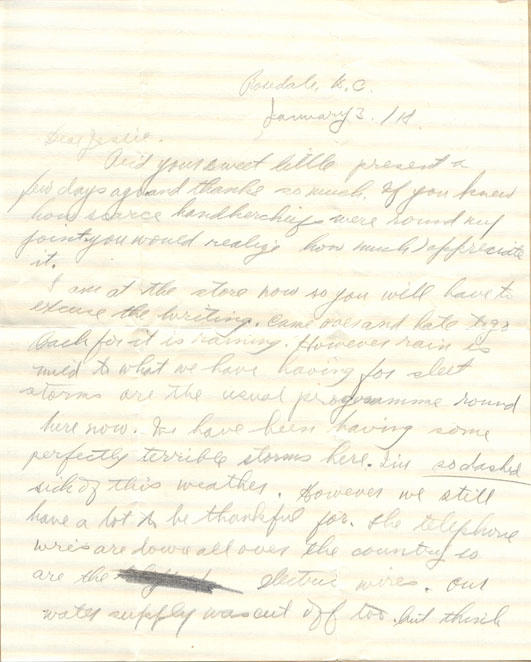 Rosedale, B.C.
January 3. /18.
Dear Jessie.
Recd your sweet little present a
few days ago and thanks so much. If you knew
how scarce handkerchiefs were round my
joint you would realize how much I appreciate
it.
I am at the store now so you will have to
excuse the writing. Came over and hate to go
back for it is raining. However rain is
mild to what we have having for sleet
storms are the usual programme round
here now. We have been having some
perfectly terrible storms here. I'm so dashed
sick of this weather. However we still
have a lot to be thankful for. The telephone
wires are down all over the country so
are the electric wires. Our
water supply was cut off too. but think